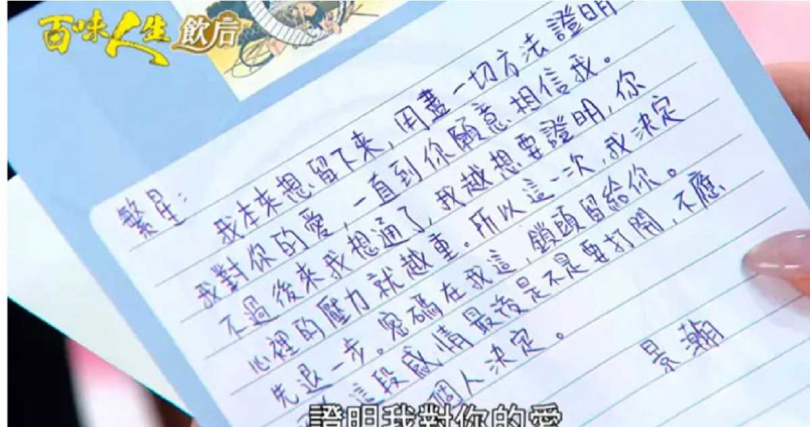 百味人生 飲后
繁星:
我本來想留下來，用盡一切方法證明
我對你的愛，一直到你願意相信我。
不過後來我想通了，我越想要證明，你
心裡的壓力就越重。所以這一次，我決定
先退一步。密碼在我這，鎖頭留給你。
這段感情最後是不是要打開，不應
個人決定。
景瀚
證明我對你的愛